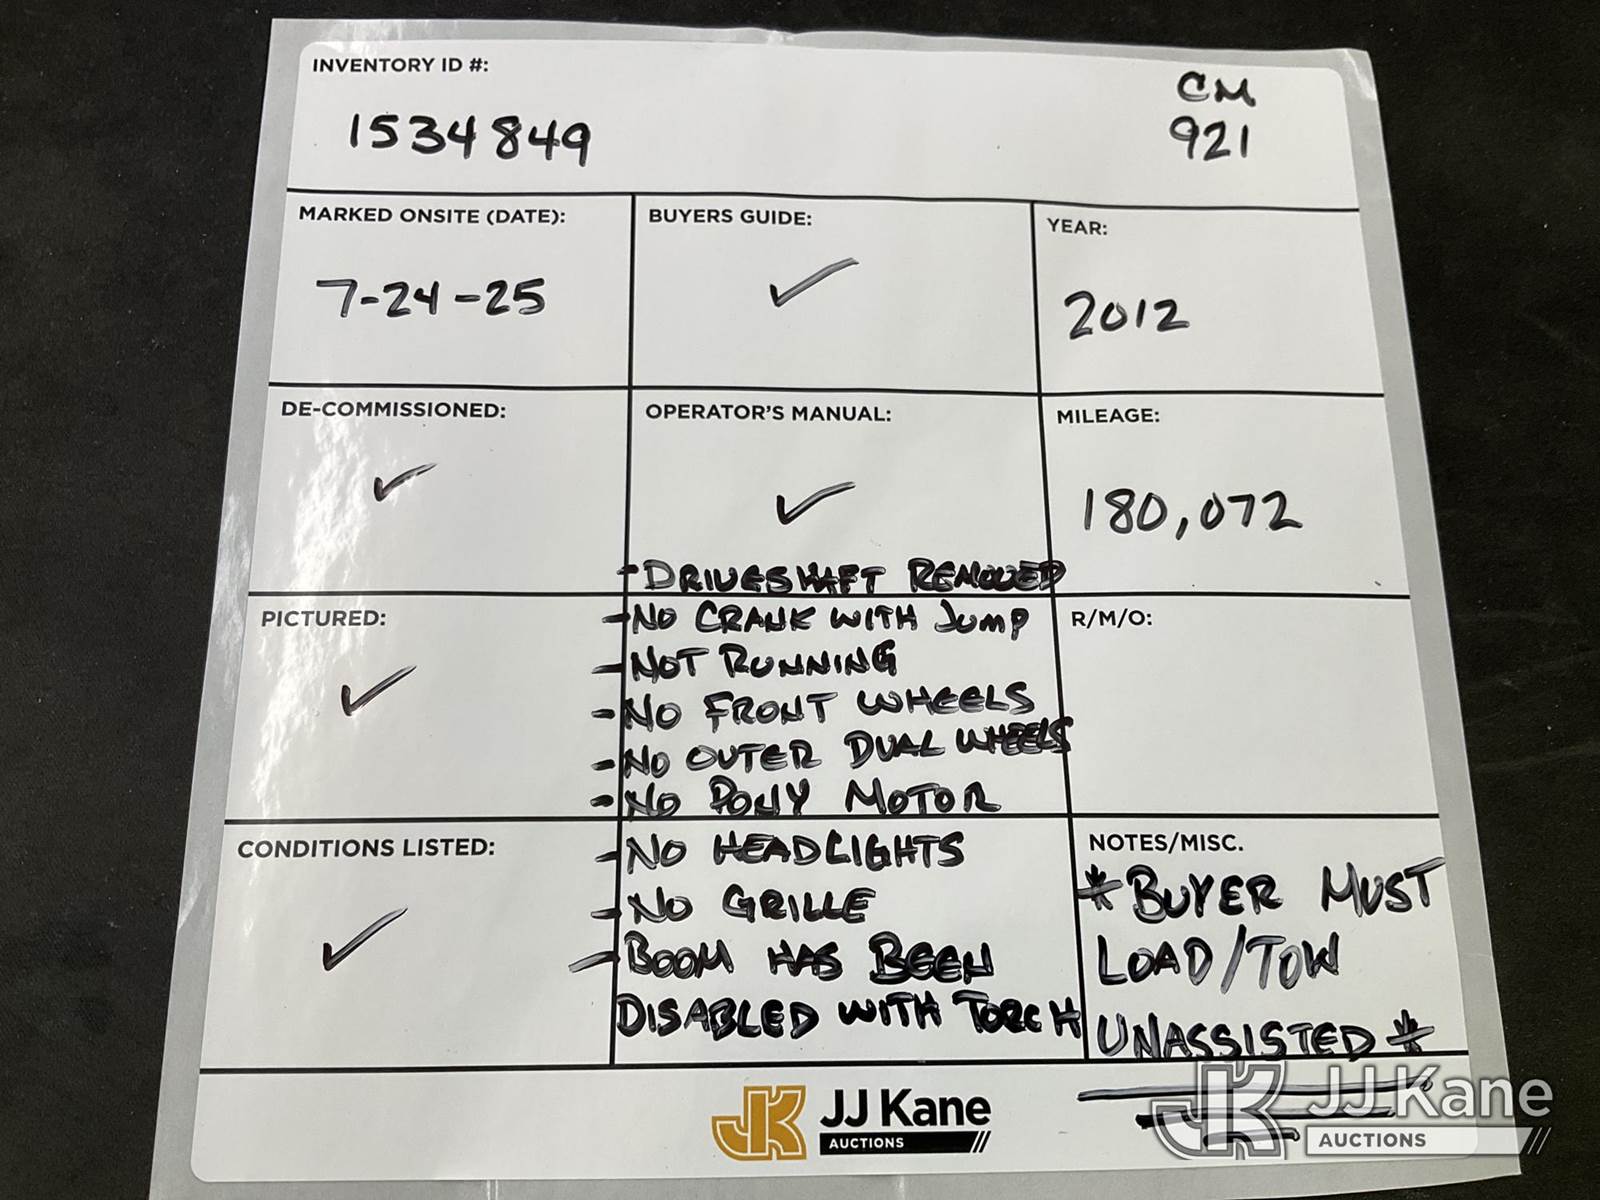 INVENTORY ID #:
CM
1534849
921
MARKED ONSITE (DATE):
BUYERS GUIDE:
YEAR:
7-24-25
✓
2012
DE-COMMISSIONED:
OPERATOR'S MANUAL:
MILEAGE:
✓
✓
180,072
-DRIVESHAFT REMOVED
PICTURED:
✓
-NO CRANK WITH JUMP
-NOT RUNNING
-NO FRONT WHEELS
-NO OUTER DUAL WHEELS
-NO PONY MOTOR
R/M/O:
CONDITIONS LISTED:
✓
-NO HEADLIGHTS
-NO GRILLE
-BOOM HAS BEEN
DISABLED WITH TORCH
NOTES/MISC.
*BUYER MUST
LOAD/TOW
UNASSISTED*
JK JJ Kane
AUCTIONS
JK JJ Kane
AUCTIONS